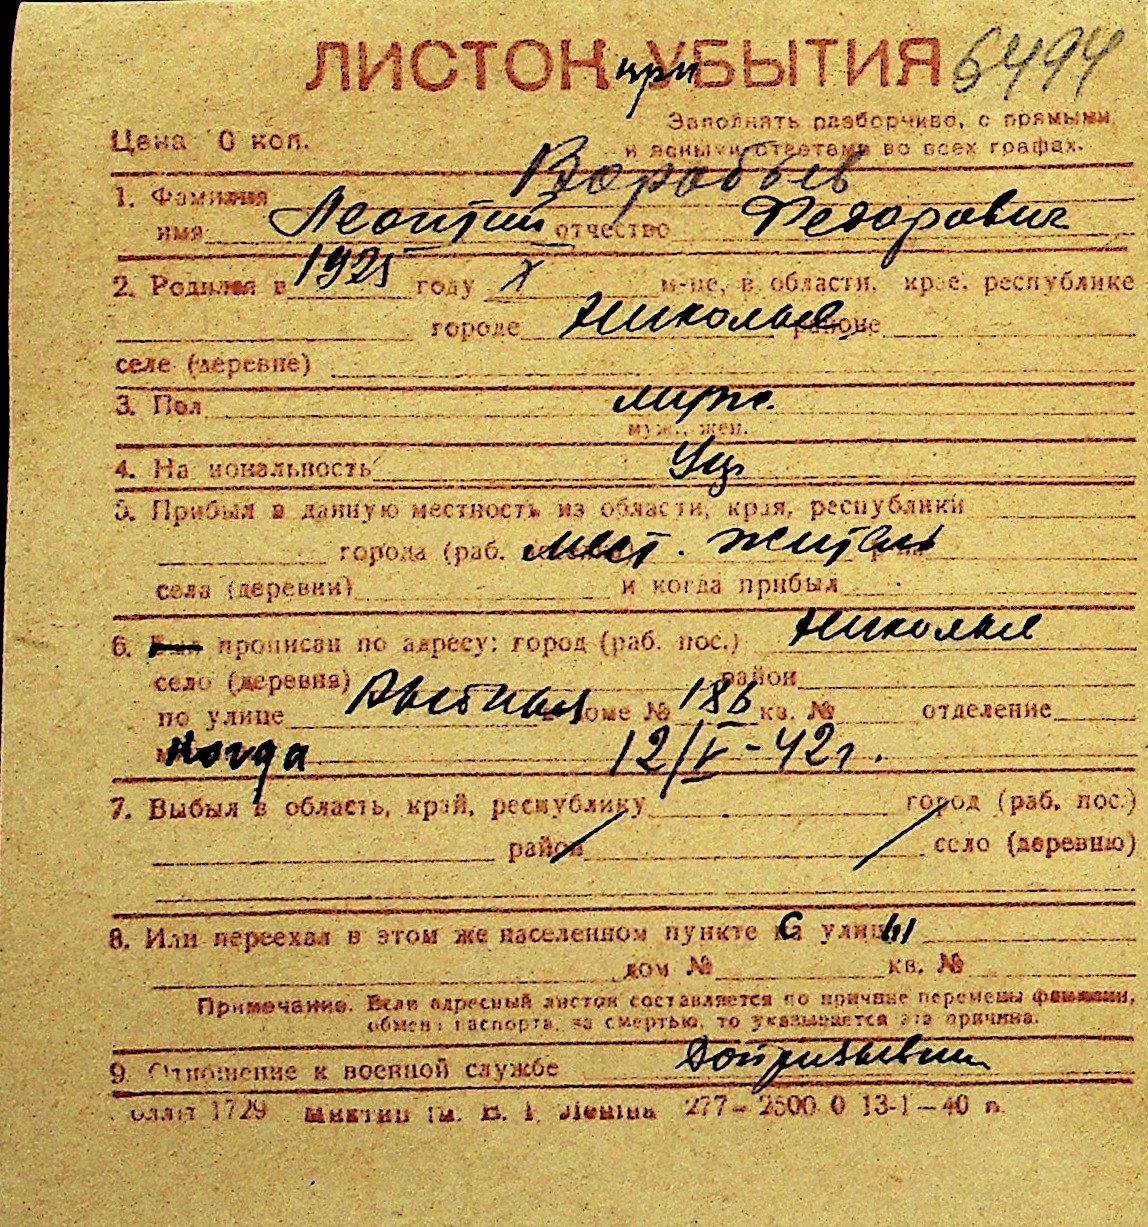 ЛИСТОК УБЫТИЯ при 6494
Цена 0 коп. Заполнять разборчиво, с прямыми
и ясными ответами во всех графах.
1. Фамилия Воробьев
имя Леонтий отчество Федорович
2. Родился в 1925 году X м-це, в области, крае, республике
городе Николаев районе
селе (деревне)
3. Пол муж.
муж., жен.
4. Национальность
5. Прибыл в данную местность из области, края, республики
города (раб. мест. житель
села (деревни) и когда прибыл
6. Был прописан по адресу: город (раб. пос.) Николаев
село (деревня) район
по улице в доме № 186 кв. № отделение
когда 12/V-42г.
7. Выбыл в область, край, республику город (раб. пос.)
район село (деревню)
8. Или переехал в этом же населенном пункте с улицы
дом № кв. №
Примечание. Если адресный листок составляется по причине перемены фамилии,
обмена паспорта, за смертью, то указывается эта причина.
9. Отношение к военной службе
1729 277-2500 0 13-I-40 г.